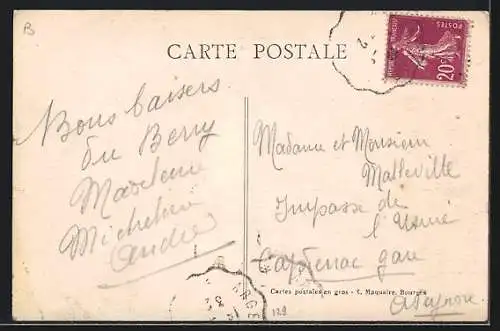 B
CARTE POSTALE
POSTES
20c
Bons baisers
du Berry
Madeleine
Micheline
André
Madame et Monsieur
Malleville
Impasse de
l'Usine
Capdenac gare
Aveyron
Cartes postales en gros - E. Maquaire, Bourges
129